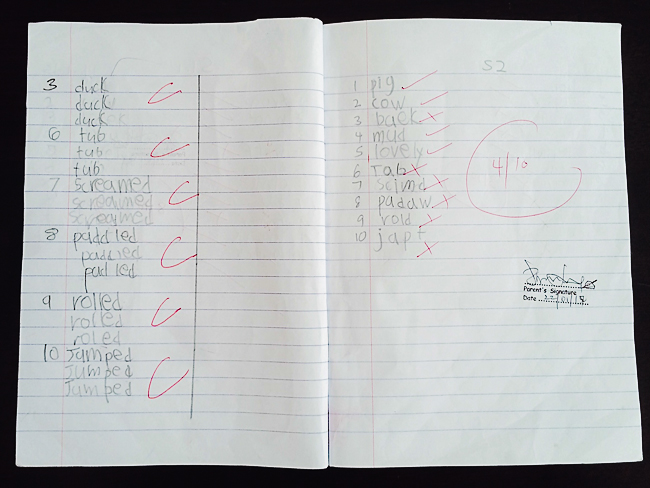 3 duck
duck
duck
6 tub
tub
tub
7 screamed
screamed
screamed
8 paddled
paddled
padled
9 rolled
rolled
roled
10 Jumped
Jumped
Jumped
S2
1 pig
2 cow
3 back
4 mud
5 lovely
6 Tab
7 scjmd
8 padaw
9 rold
10 japt
4/10
Parent's Signature
Date